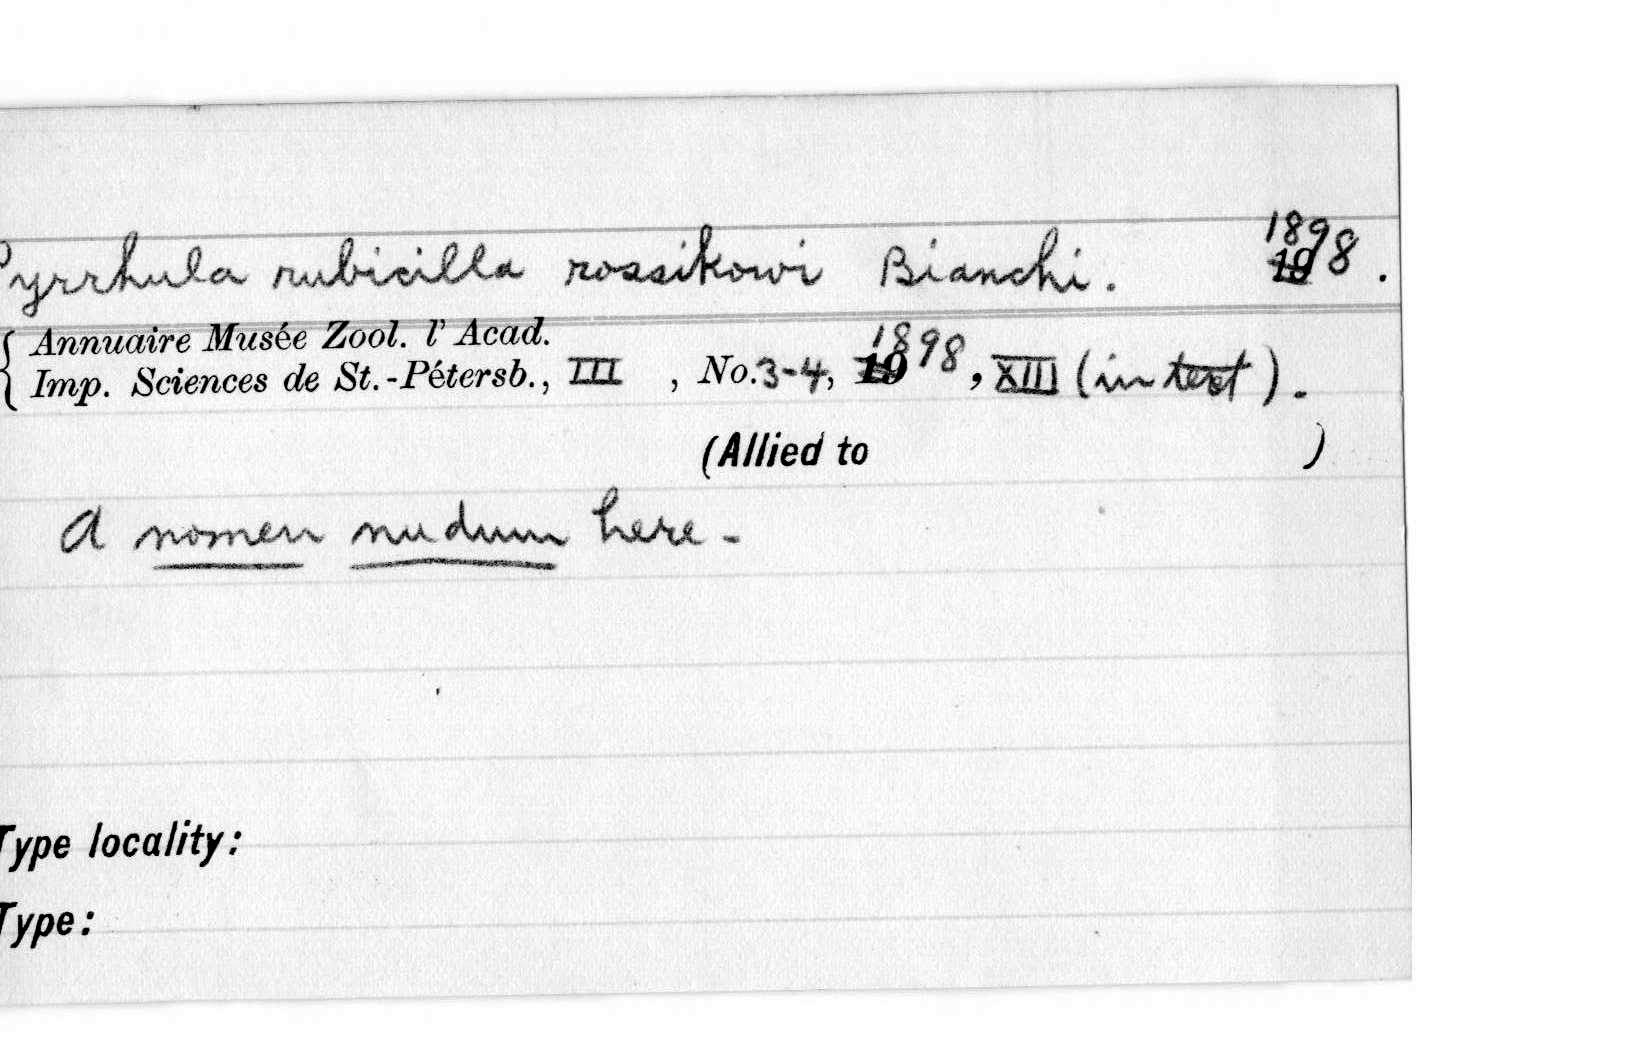 Pyrrhula rubicilla rossikowi Bianchi. 1898.
Annuaire Musée Zool. l' Acad.
Imp. Sciences de St.-Pétersb., III , No. 3-4, 1898, XIII (in text).
(Allied to )
A nomen nudum here-
Type locality:
Type: